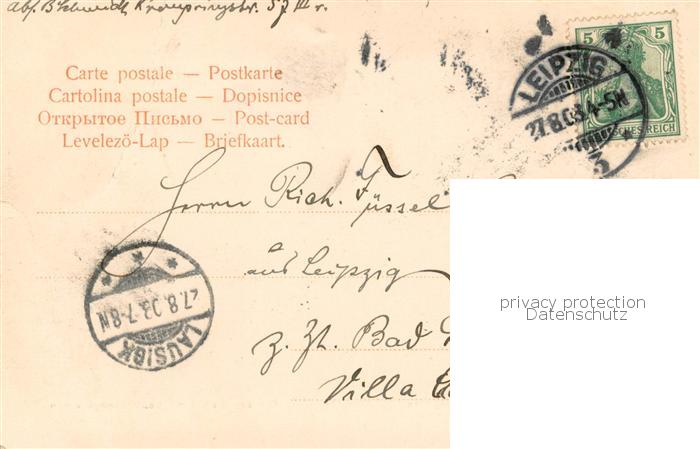 Abs. B Schmidt, Kronprinzstr. 57 III r.
Carte postale — Postkarte
Cartolina postale — Dopisnice
Открытое Письмо — Post-card
Levelező-Lap — Brjefkaart.
5 5
LEIPZIG
27.8.03.4-5N
Herrn Rich. Füssel
aus Leipzig
z. Zt. Bad
Villa
27.8.03.7-8N
LAUSIGK
privacy protection
Datenschutz